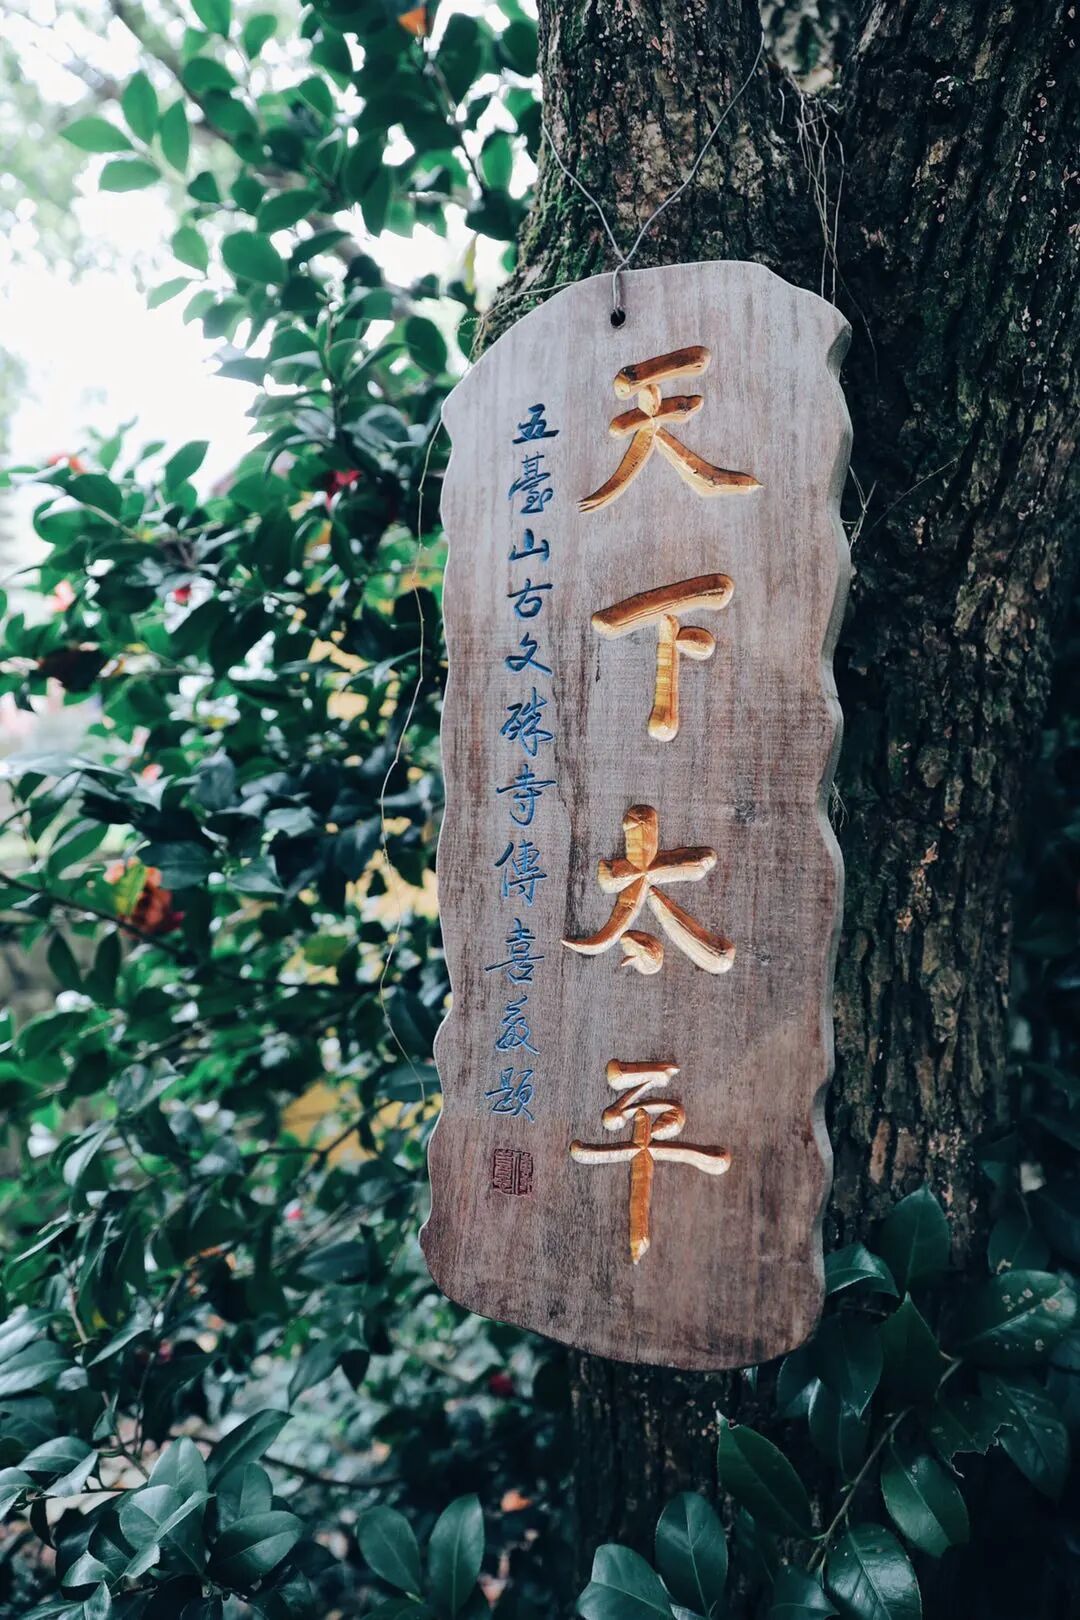 天下太平
五臺山古文殊寺傳喜敬題